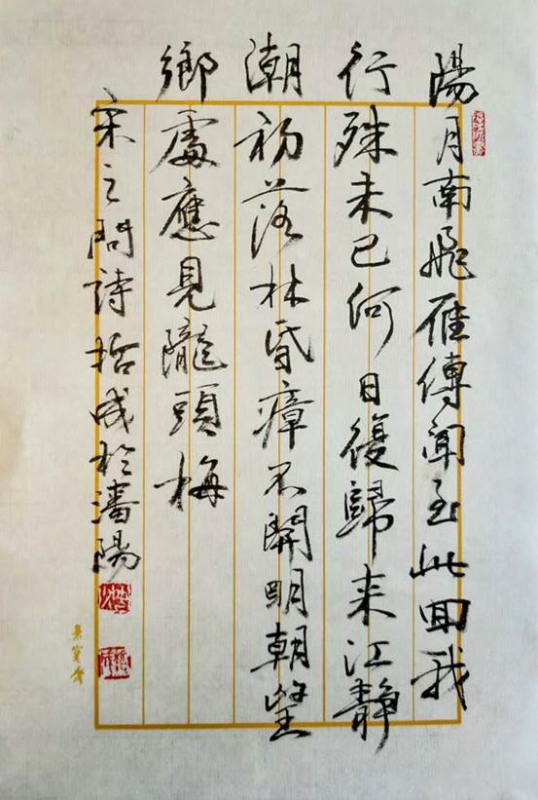 陽月南飛雁傳聞至此回我
行殊未已何日復歸來江靜
潮初落林昏瘴不開明朝望
鄉處應見隴頭梅
宋之問詩 哲成於瀋陽